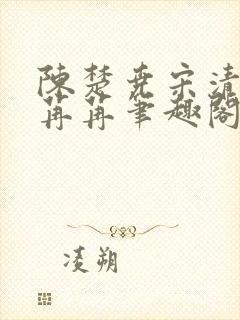 陳楚堯宋清
苒苒筆趣閣
凌朔